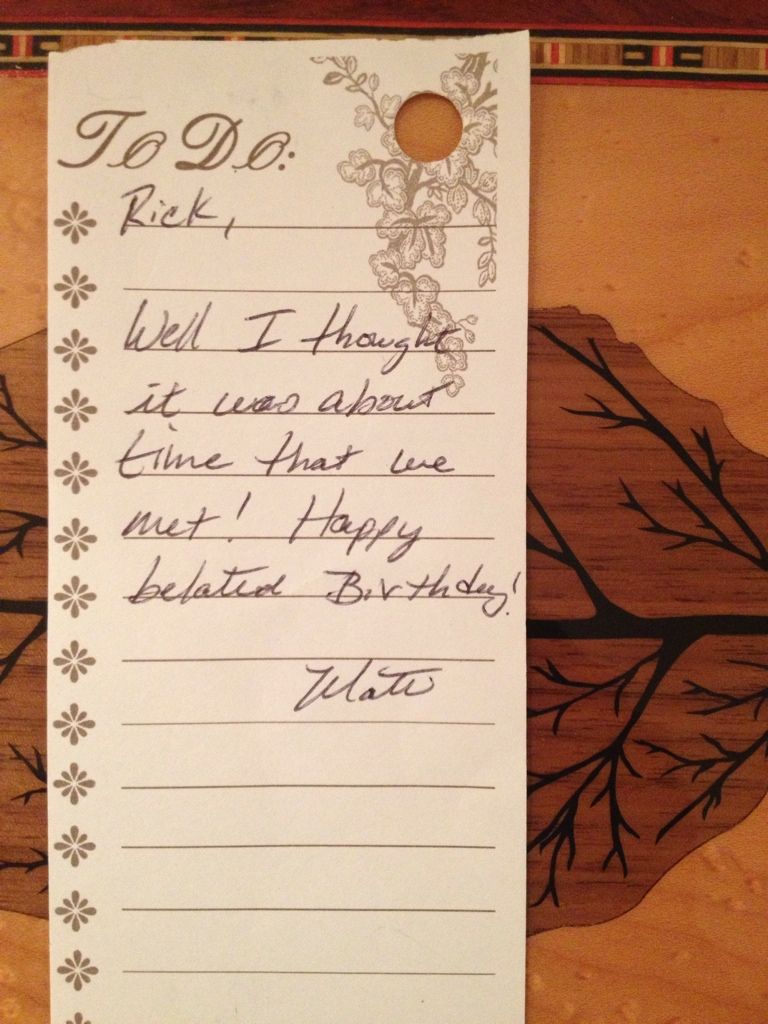 To Do:
Rick,
Well I thought
it was about
time that we
met! Happy
belated Birthday!